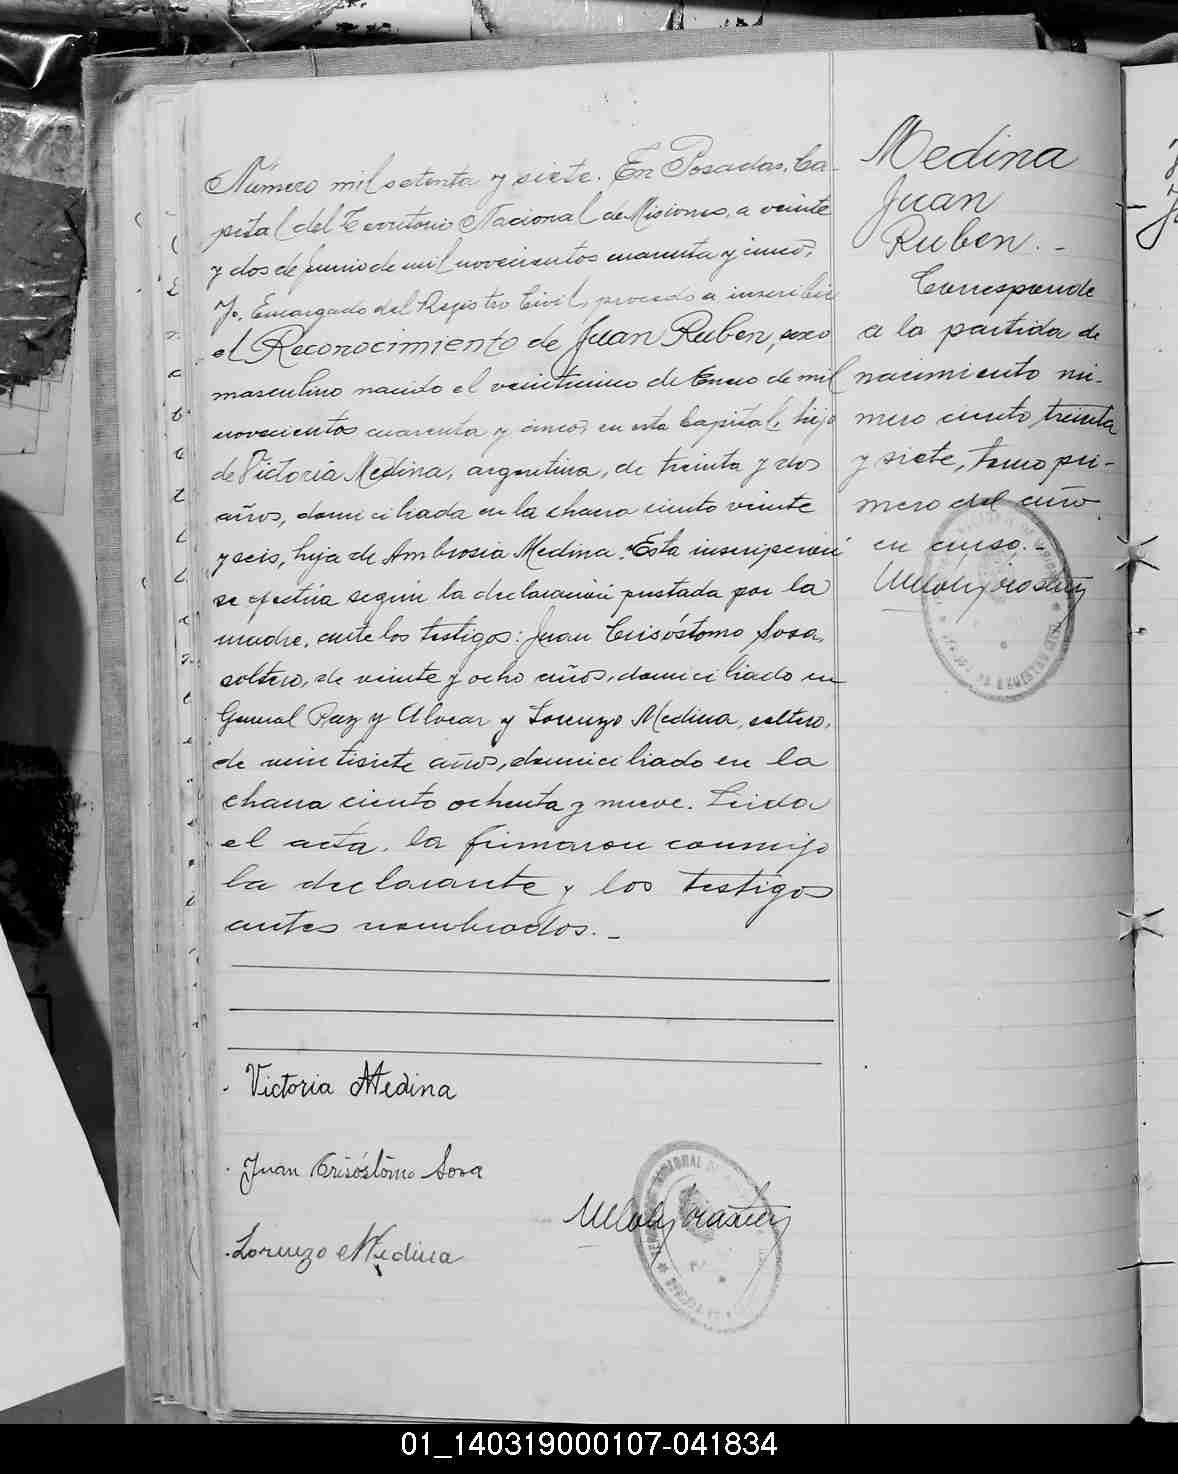 Número mil setenta y siete. En Posadas, Ca-
pital del Territorio Nacional de Misiones, a veinte
y dos de Junio de mil novecientos cuarenta y cinco,
Yo, Encargado del Registro Civil, procedo a inscribir
el Reconocimiento de Juan Ruben, sexo
masculino nacido el veinticinco de Enero de mil
novecientos cuarenta y cinco, en esta Capital, hijo
de Victoria Medina, argentina, de treinta y dos
años, domiciliada en la chacra ciento veinte
y seis, hija de Ambrosia Medina. Esta inscripción
se efectúa según la declaración prestada por la
madre, ante los testigos: Juan Crisóstomo Sosa,
soltero, de veinte y ocho años, domiciliado en
General Paz y Alvear y Lorenzo Medina, soltero,
de veintisiete años, domiciliado en la
chacra ciento ochenta y nueve. Leida
el acta, la firmaron conmigo
la declarante y los testigos
antes nombrados. -
Victoria Medina
Juan Crisóstomo Sosa
Lorenzo Medina
Medina
Juan
Ruben. -
Corresponde
a la partida de
nacimiento nú-
mero ciento treinta
y siete, tomo pri-
mero del año
en curso. -
01_140319000107-041834